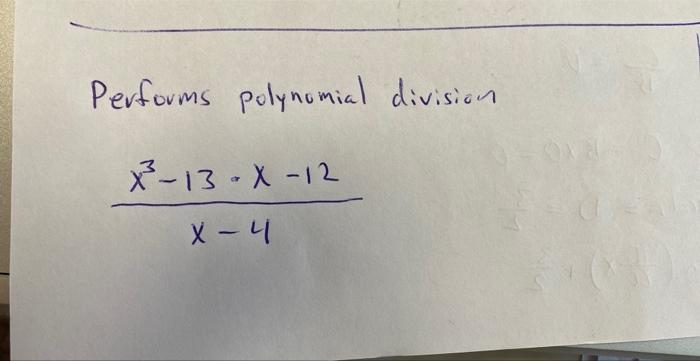 Performs polynomial division
x³-13·x-12
x-4